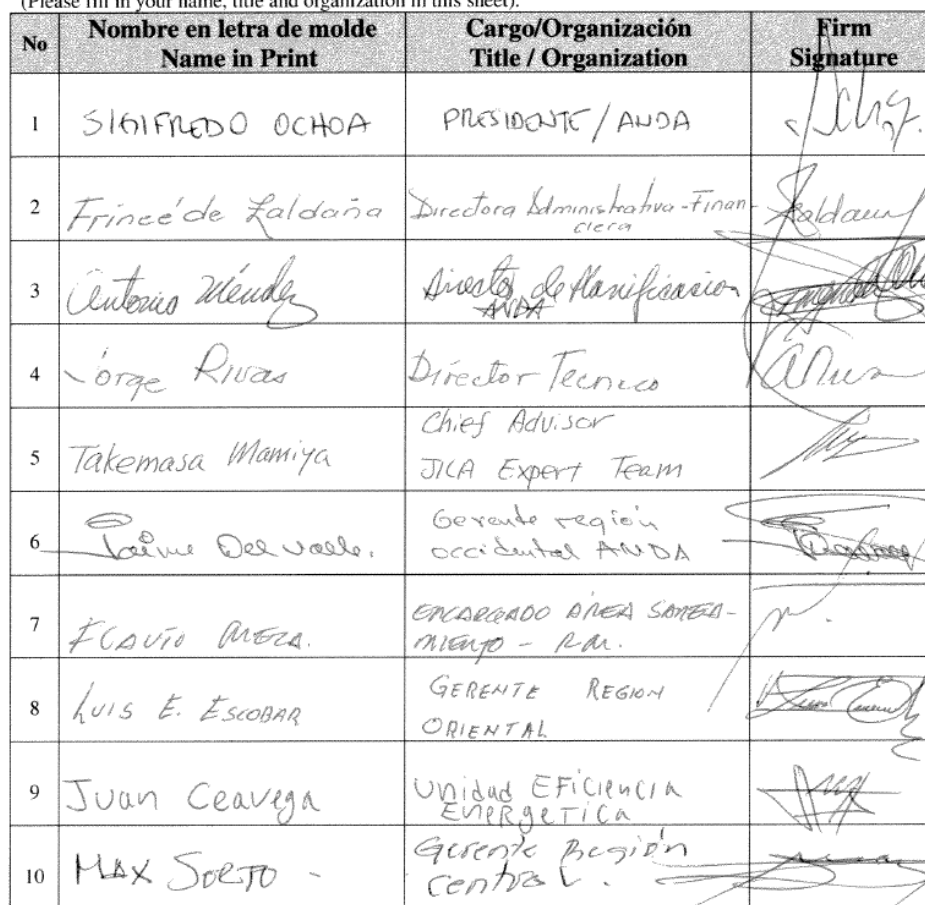 (Please fill in your name, title and organization in this sheet).
No Nombre en letra de molde Cargo/Organización Firm
Name in Print Title / Organization Signature
1 SIGIFREDO OCHOA PRESIDENTE / ANDA
2 Frineé de Zaldaña Directora Administrativa-Finan-
ciera
3 Antonio Méndez Director de Planificacion
ANDA
4 Jorge Rivas Director Tecnico
5 Takemasa Mamiya Chief Advisor
JICA Expert Team
6 Jaime Del valle. Gerente región
occidental ANDA
7 FLAVIO MEZA. ENCARGADO AREA SANEA-
MIENTO - R.M.
8 LUIS E. ESCOBAR GERENTE REGION
ORIENTAL
9 Juan Ceavega Unidad EFiciencia
Energetica
10 MAX SORTO - Gerente Región
Central.